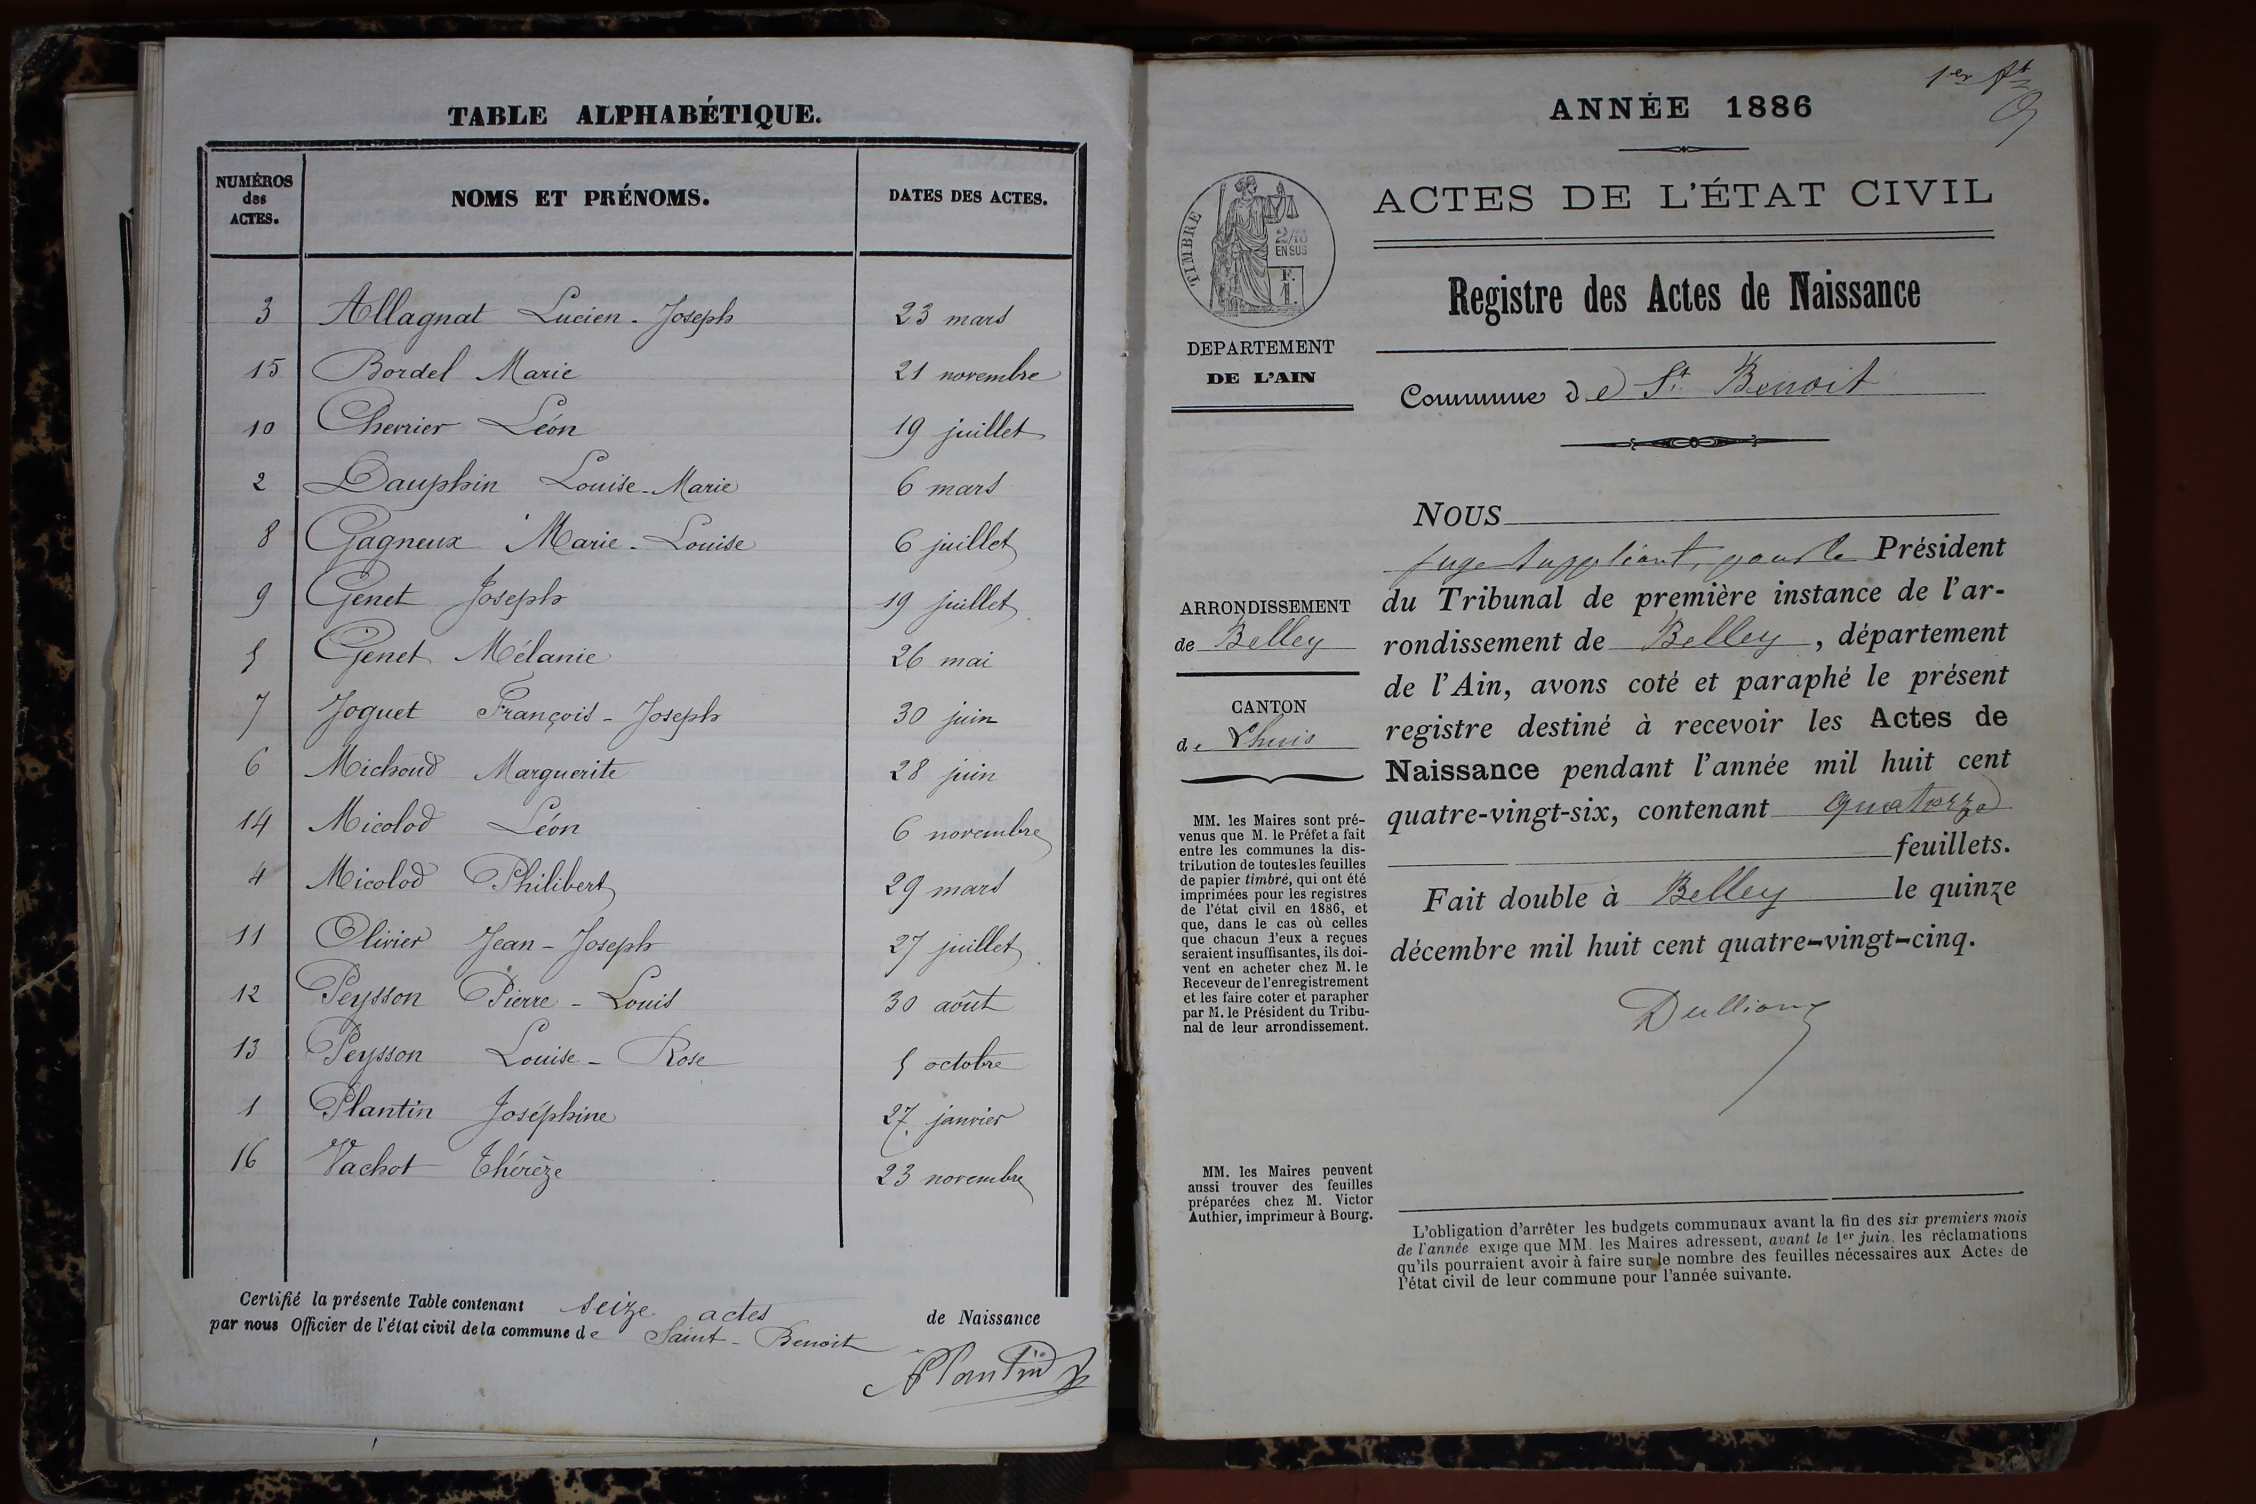 TABLE ALPHABÉTIQUE.
NUMÉROS
des
ACTES.
NOMS ET PRÉNOMS.
DATES DES ACTES.
3 Allagnat Lucien-Joseph 23 mars
15 Bordel Marie 21 novembre
10 Cherrier Léon 19 juillet
2 Dauphin Louise-Marie 6 mars
8 Gagneux Marie-Louise 6 juillet
9 Genet Joseph 19 juillet
5 Genet Mélanie 26 mai
7 Joguet François-Joseph 30 juin
6 Michoud Marguerite 28 juin
14 Micolod Léon 6 novembre
4 Micolod Philibert 29 mars
11 Olivier Jean-Joseph 27 juillet
12 Peysson Pierre-Louis 30 août
13 Peysson Louise-Rose 5 octobre
1 Plantin Joséphine 27 janvier
16 Vachot Thérèze 23 novembre
Certifié la présente Table contenant seize actes de Naissance
par nous Officier de l'état civil de la commune de Saint-Benoit
Plantin
1er ft
ANNÉE 1886
ACTES DE L'ÉTAT CIVIL
TIMBRE
2/10
EN SUS
F.
1.
Registre des Actes de Naissance
DEPARTEMENT
DE L'AIN
Commune de St Benoit
NOUS
juge suppléant, pour le Président
du Tribunal de première instance de l'ar-
rondissement de Belley, département
de l'Ain, avons coté et paraphé le présent
registre destiné à recevoir les Actes de
Naissance pendant l'année mil huit cent
quatre-vingt-six, contenant quatorze
feuillets.
Fait double à Belley le quinze
décembre mil huit cent quatre-vingt-cinq.
ARRONDISSEMENT
de Belley
CANTON
de Lhuis
MM. les Maires sont pré-
venus que M. le Préfet a fait
entre les communes la dis-
tribution de toutes les feuilles
de papier timbré, qui ont été
imprimées pour les registres
de l'état civil en 1886, et
que, dans le cas où celles
que chacun d'eux a reçues
seraient insuffisantes, ils doi-
vent en acheter chez M. le
Receveur de l'enregistrement
et les faire coter et parapher
par M. le Président du Tribu-
nal de leur arrondissement.
MM. les Maires peuvent
aussi trouver des feuilles
préparées chez M. Victor
Authier, imprimeur à Bourg.
L'obligation d'arrêter les budgets communaux avant la fin des six premiers mois
de l'année exige que MM. les Maires adressent, avant le 1er juin, les réclamations
qu'ils pourraient avoir à faire sur le nombre des feuilles nécessaires aux Actes de
l'état civil de leur commune pour l'année suivante.